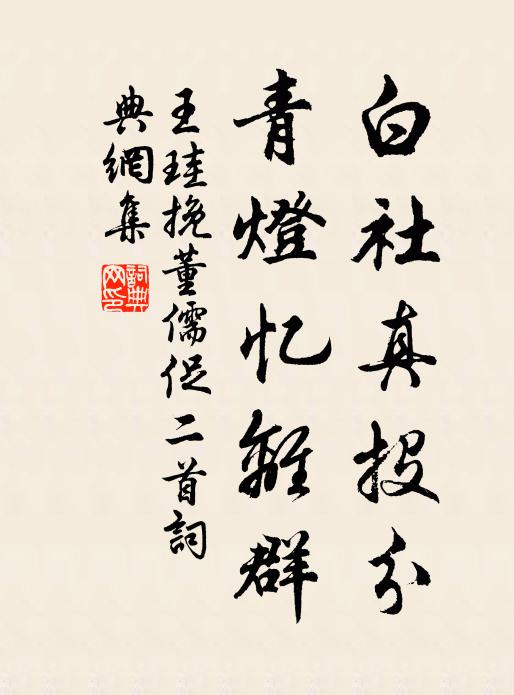 白社真投分
青燈忆離群
王珪挽董儒促二首詞
典網集
詞典网印